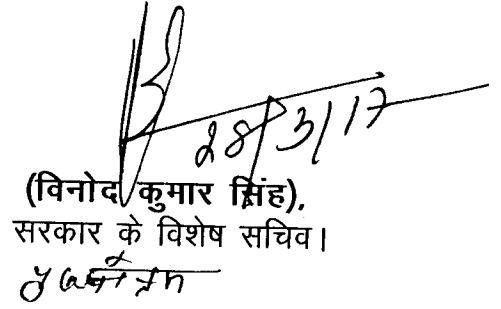 28/3/17
(विनोद कुमार सिंह),
सरकार के विशेष सचिव।